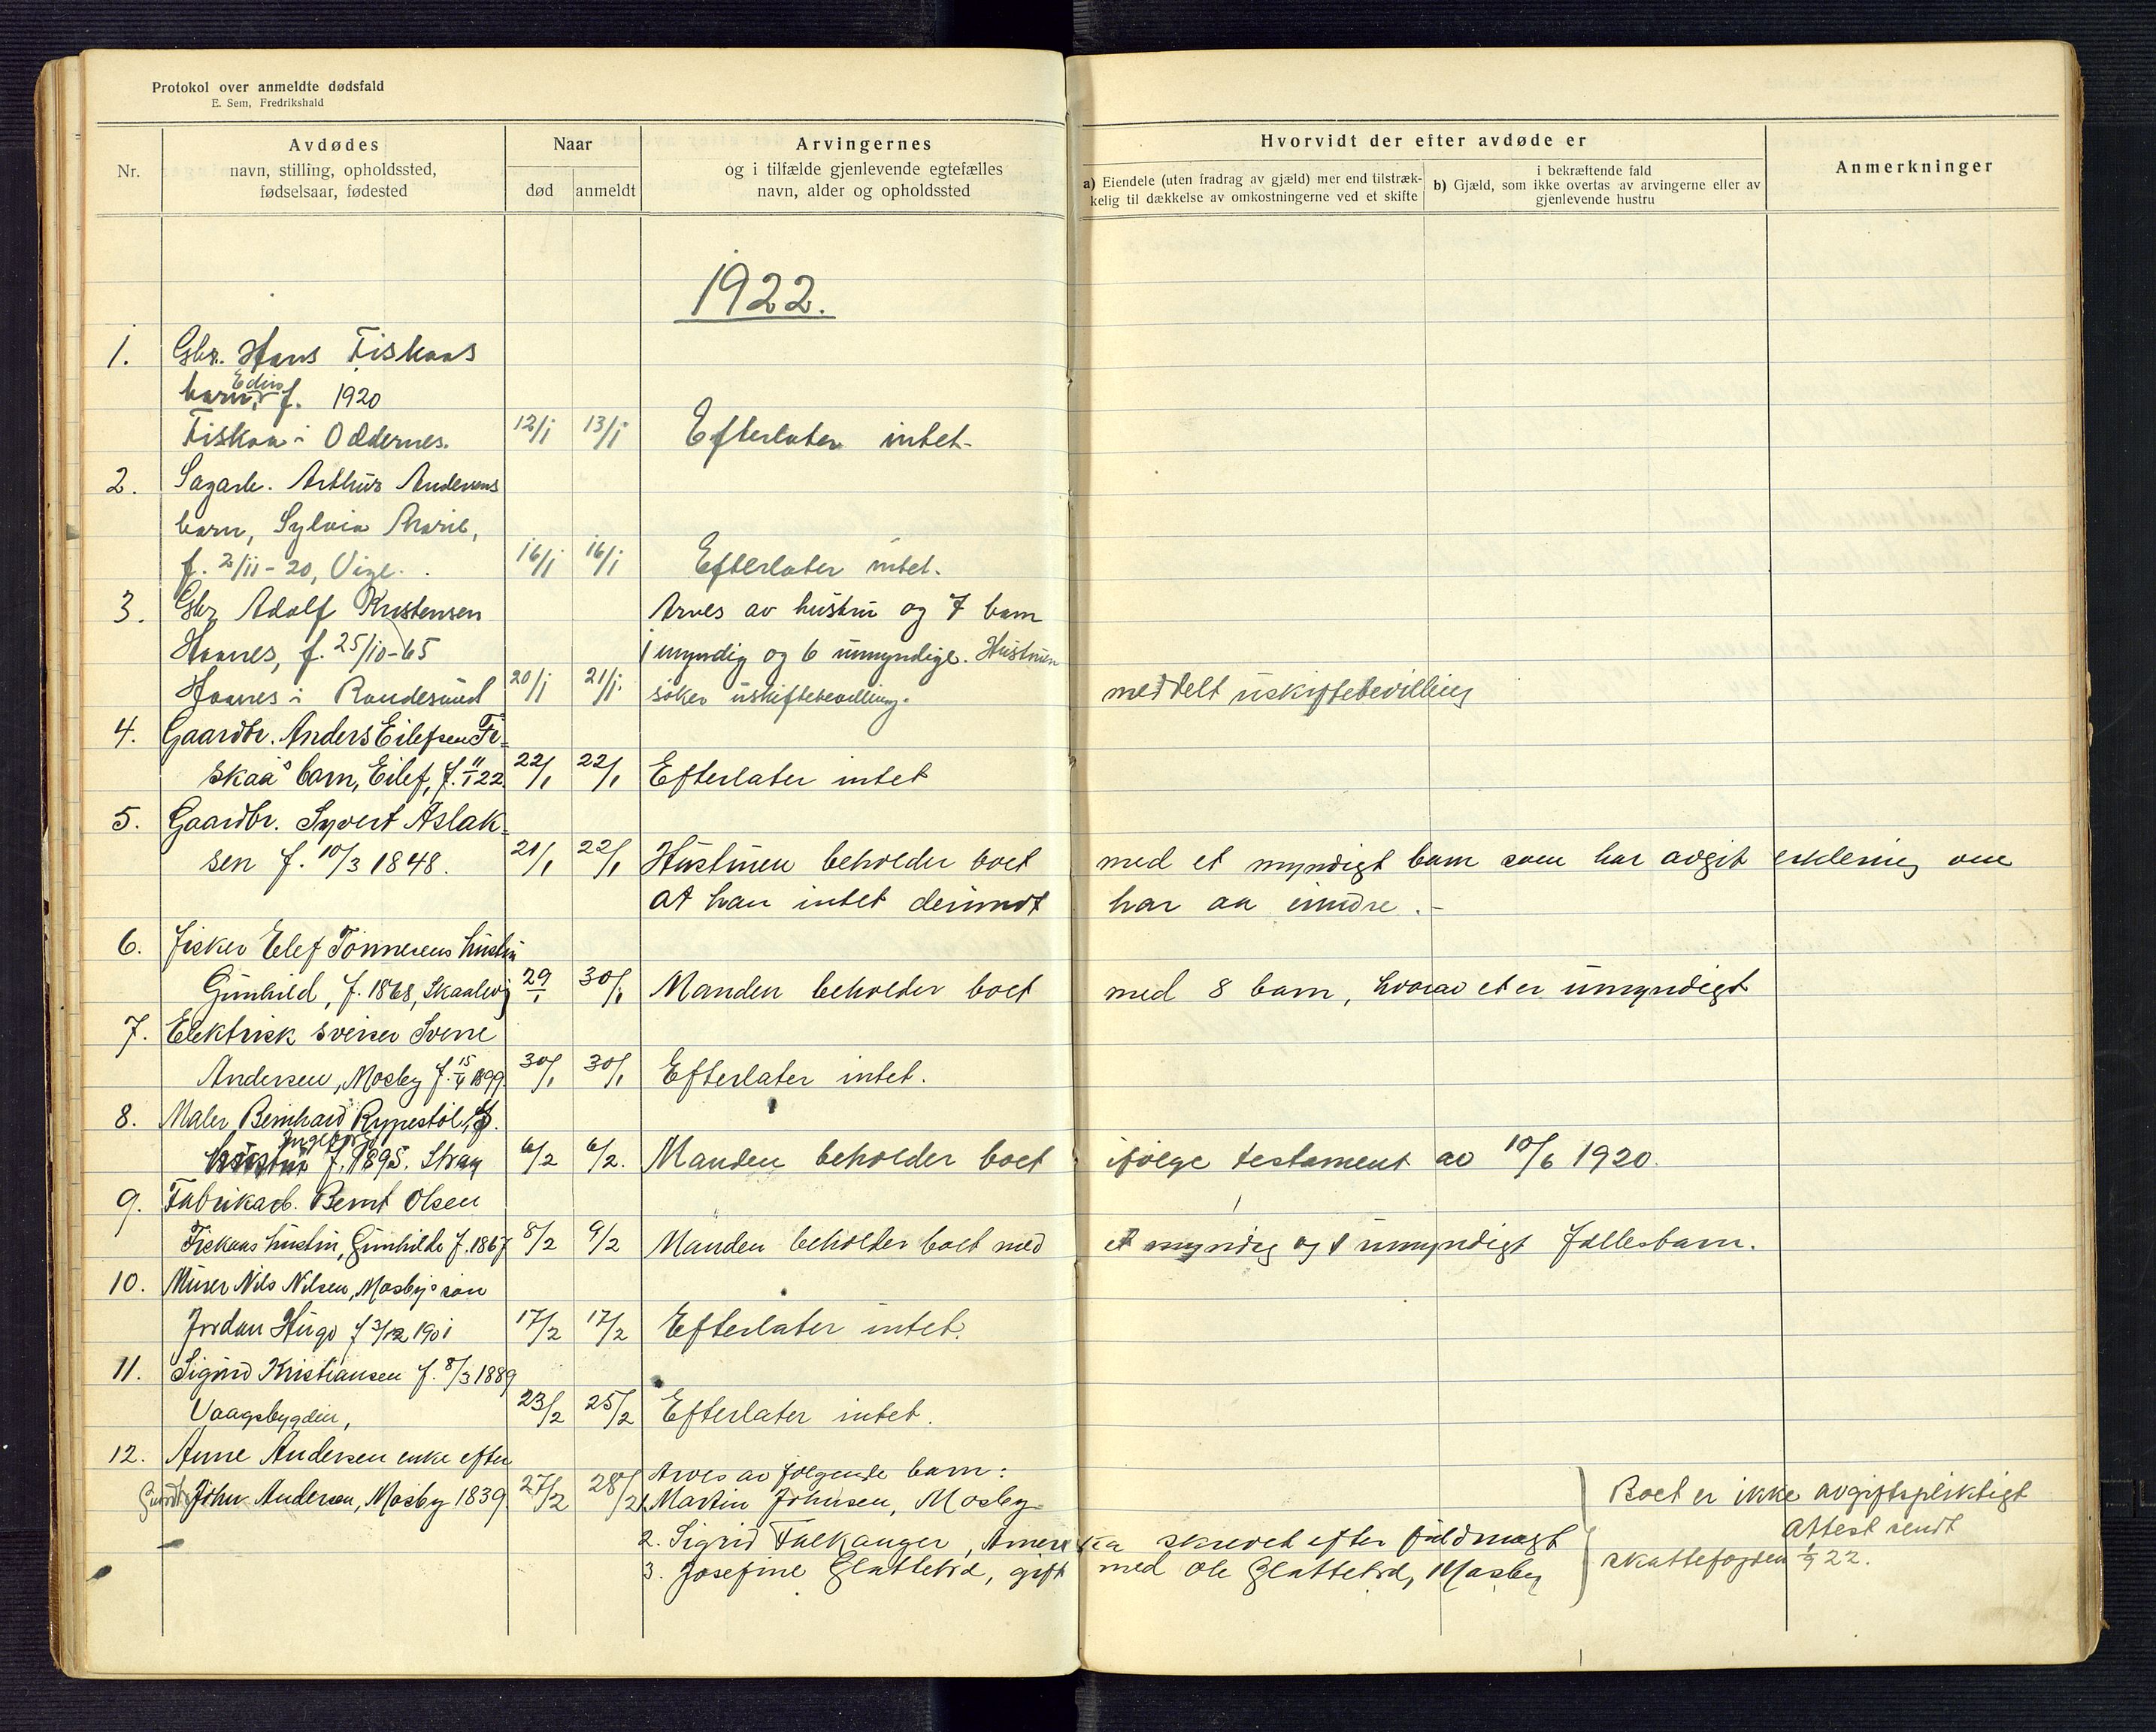 Protokol over anmeldte dødsfald
E. Sem, Fredrikshald
Nr.
Avdødes
navn, stilling, opholdssted,
fødselsaar, fødested
Naar
død
anmeldt
Arvingernes
og i tilfælde gjenlevende egtefælles
navn, alder og opholdssted
Hvorvidt der efter avdøde er
a) Eiendele (uten fradrag av gjæld) mer end tilstræk-
kelig til dækkelse av omkostningerne ved et skifte
i bekræftende fald
b) Gjæld, som ikke overtas av arvingerne eller av
gjenlevende hustru
Anmerkninger
1922.
1. Gbr. Hans Fiskaas
barn, f. 1920
Fiskaa i Oddernes. 12/1 13/1 Efterlater intet
2. Sagarb. Arthur Andersens
barn, Sylvia Marie,
f. 2/11-20, Vige. 16/1 16/1 Efterlater intet.
3. Gbr. Adolf Kristensen Arves av hustru og 7 barn
Haanes, f. 25/10-65 1 myndig og 6 umyndige. Hustruen
Haanes i Randesund 20/1 21/1. søker uskiftebevilling. meddelt uskiftebevilling
4. Gaardbr. Anders Eilefsen Fi-
skaa's barn, Eilef, f. 11/1 22. 22/1 22/1 Efterlater intet
5. Gaardbr. Syvert Aslak-
sen f. 10/3 1848. 21/1 22/1 Hustruen beholder boet med et myndigt barn som har avgit erklering om
at han intet derimot har aa indre.-
6. Fisker Elef Tønnesens hustru
Gunhild, f. 1868, Skaalevig 29/1 30/1 Manden beholder boet med 8 barn, hvorav et er umyndigt
7. Elektrisk sveiser Sverre
Andersen, Mosby f. 15/4 1899. 30/1 30/1 Efterlater intet.
8. Maler Bernhard Rypestøl,s
Ingeborg
hustru f. 1895. Stray 6/2 6/2. Manden beholder boet ifølge testament av 10/6 1920.
9. Fabrikarb. Bernt Olsen
Fiskaas hustru, Gunhilde f. 1867 8/2 9/2 Manden beholder boet med et myndig og 1 umyndigt fællesbarn.
10. Murer Nils Nilsen, Mosby's søn
Jordan Hugo f 3/12 1901 17/2 17/2 Efterlater intet.
11. Sigurd Kristiansen f. 8/3 1889
Vaagsbygden, 23/2 25/2 Efterlater intet.
12. Anne Andersen enke efter
Arves av følgende barn:
John Andersen, Mosby 1839. 27/2 28/2 1. Martin Johnsen, Mosby Boet er ikke avgiftspliktigt
2. Sigrid Falkanger, Amerika skrevet efter fuldmagt Attest sendt
3. Josefine Glattetrd, gift med Ole Glattetrd, Mosby skattefogden 1/9 22.